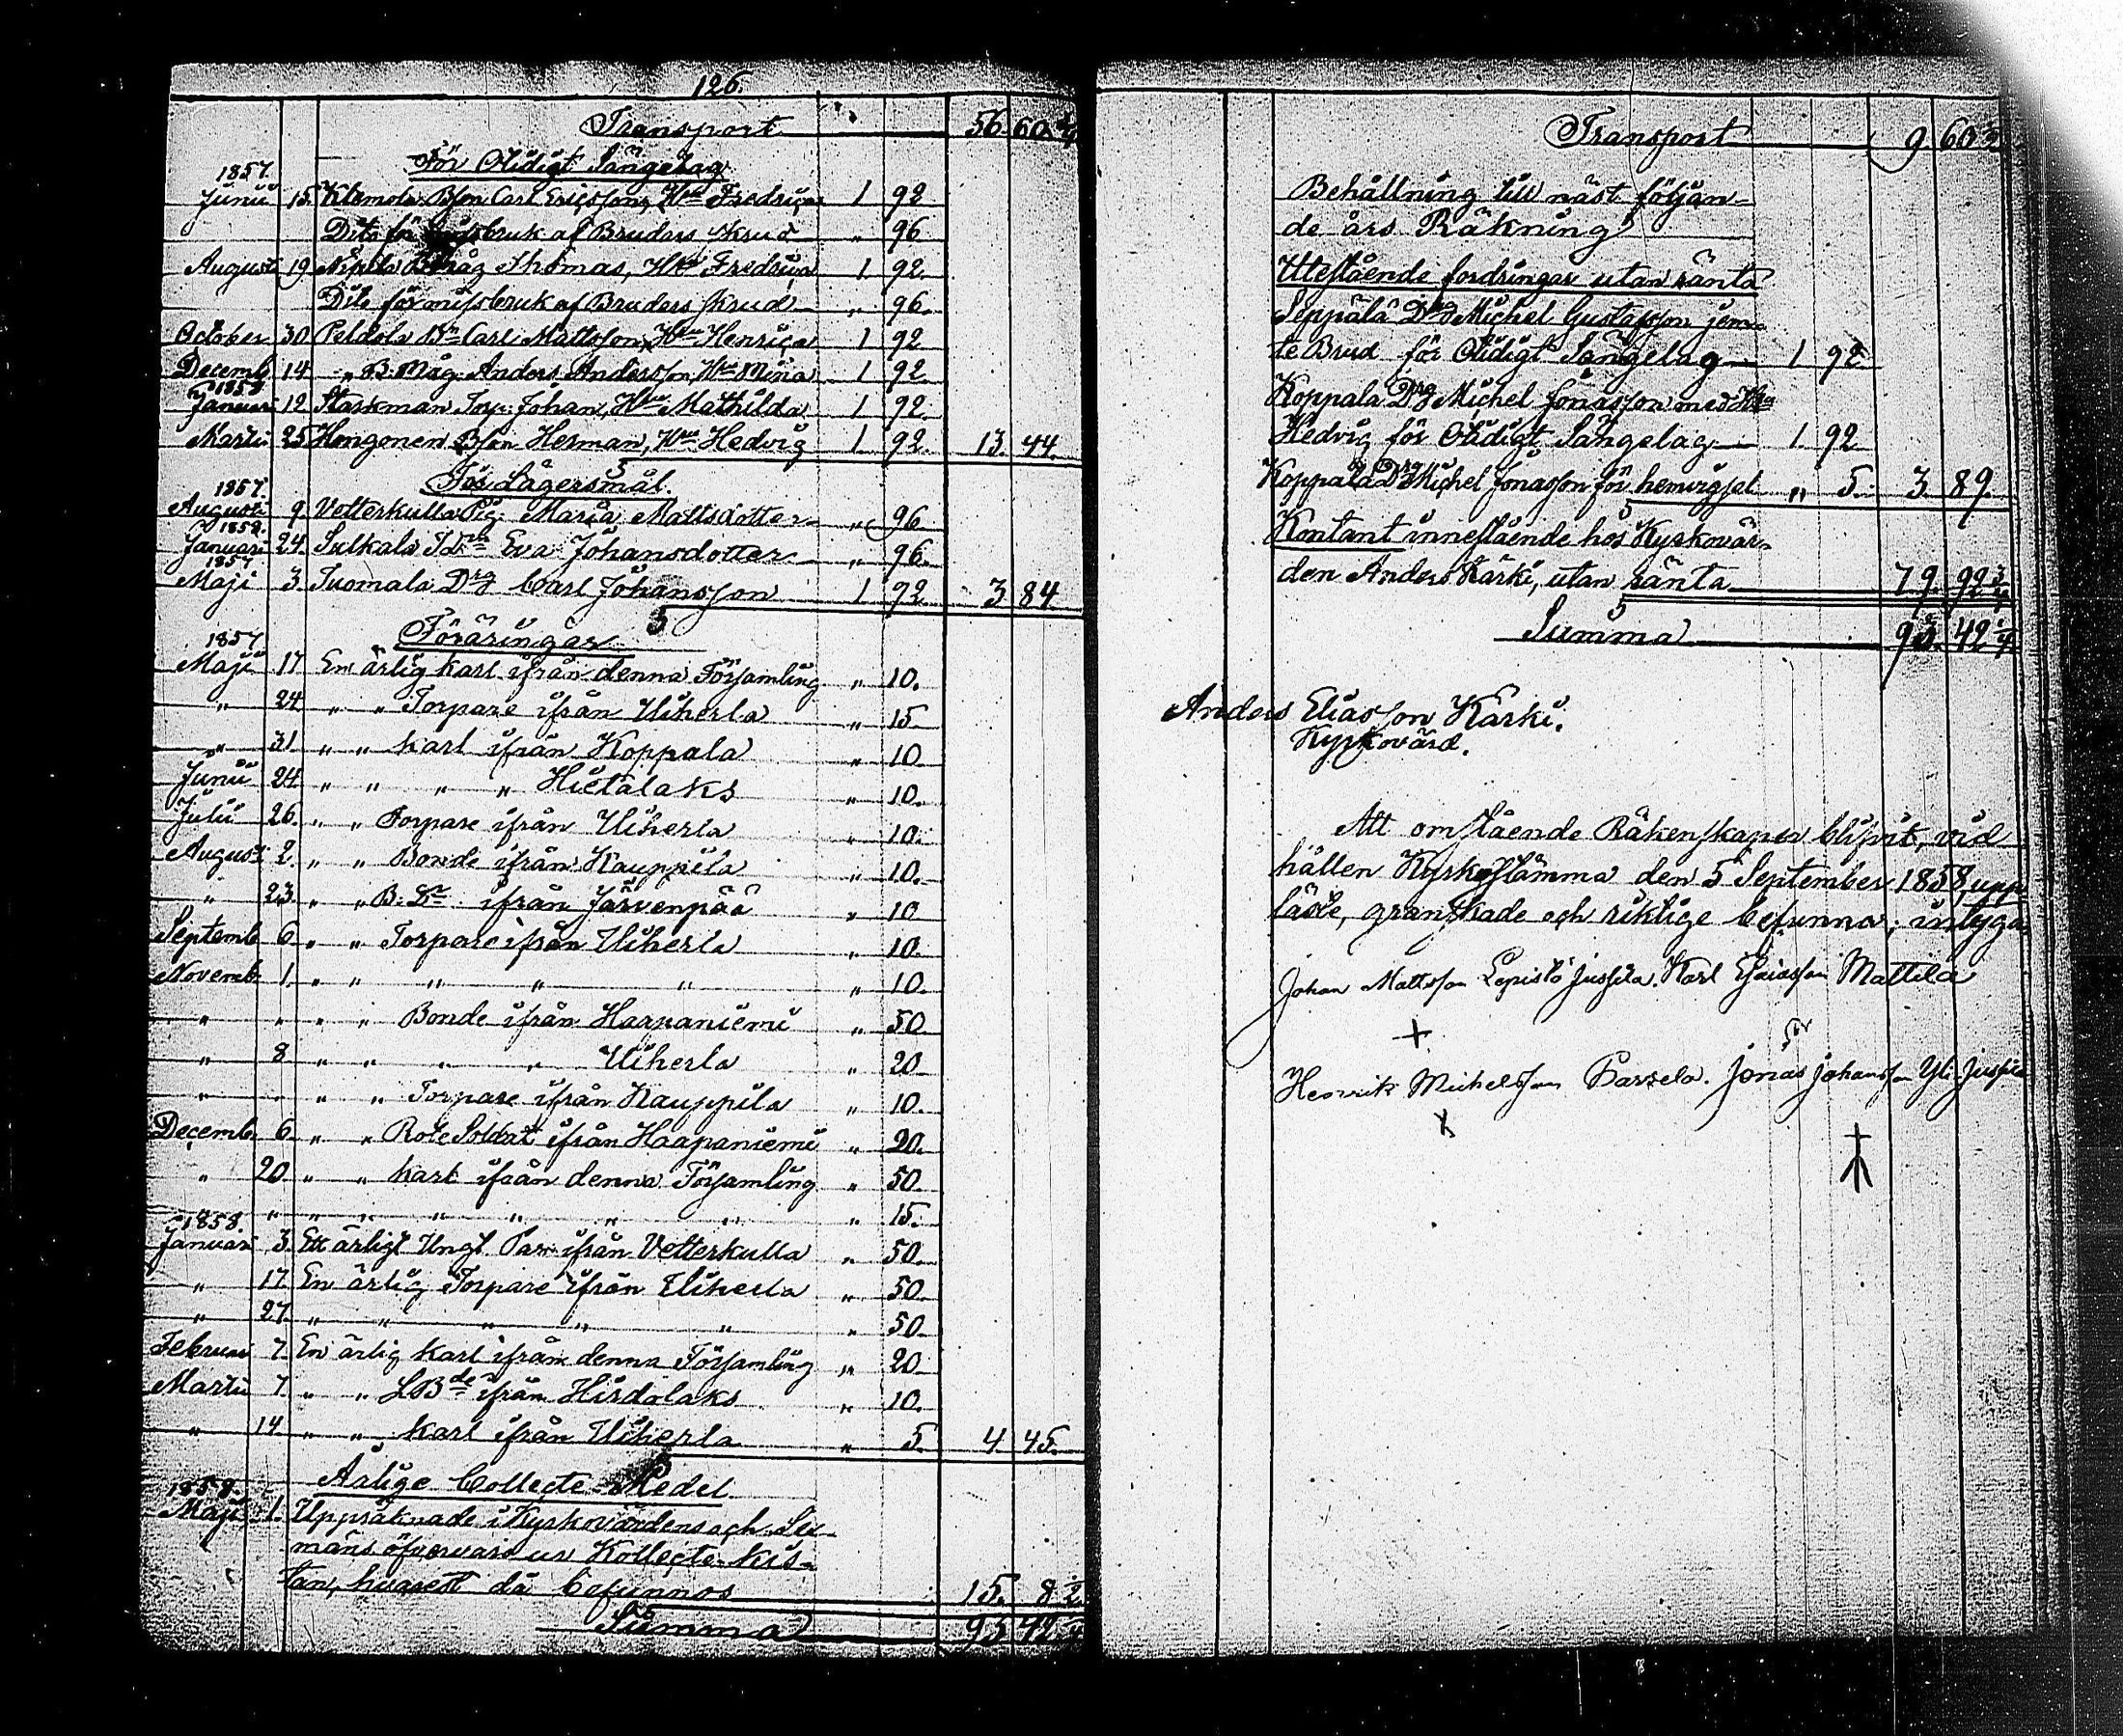 126.
Transport 56. 60 1/4
För Otidigt Sängelag
1857.
Junii 15. Klemola Bson Carl Ericsson, Hu Fredrica 1 92
Dito för bruk af Bruders skrud " 96
Augusti 19 Thomas, Hu Fredrica 1. 92.
Dito för missbruk af Bruders skrud " 96.
October 30 Peldola Bn Carl Mattsson, Hu Henrica 1 92
Decemb. 14 " B. Måg Anders Andersson Hu Mina 1 92
1858
Januari 12 Starkman Torp: Johan, Hu Mathilda 1 92.
Martii 25 Hongonen Bson Herman, Hu Hedvig 1. 92. 13. 44.
För Lägersmål.
1857.
Augusti 9 Vetterkulla Pig: Maria Mattsdotter " 96
1858.
Januari 24. Sulkala Eva Johansdotter " 96.
1857
Maji 3. Tuomala Drg Carl Johansson 1 92 3 84
Föräringar
1857
Maji 17 En ärlig karl ifrån denna Församling " 10.
" 24 " " Torpare ifrån Uiherla " 15
" 31 " " karl ifrån Koppala " 10
Junii 24. " " " " Hietalaks " 10.
Julii 26. " " Torpare ifrån Uiherla " 10.
August 2. " " Bonde ifrån Kauppila " 10.
" 23. " " B. Dr ifrån Järvenpää " 10
Septemb 6 " " Torpare ifrån Uiherla " 10.
Novemb. 1. " " " " " " 10.
" " " " Bonde ifrån Haapaniemi " 50
" 8 " " " " Uiherla " 20
" " " " Torpare ifrån Kauppila " 10.
Decemb 6 " " Rote Soldat ifrån Haapaniemi " 20.
" 20 " " karl ifrån denna Församling " 50.
" " " " " " " " " 15.
1858.
Januari 3. Ett ärligt Ungt Par ifrån Vetterkulla " 50.
" 17. En ärlig Torpare ifrån Uiherla " 50.
" 27. " " " " " " 50.
Februari 7. En ärlig karl ifrån denna Församling " 20
Martii 7. " " LBde ifrån Hirdolaks " 10.
" 14 " " karl ifrån Uiherla " 5. 4 45.
Årlige Collecte-Medel
1858.
Maji 1. Uppräknade i Kyrkovärdens och Sex-
mäns öfvervaro ur Kollecte-kis-
tan, hvarest då befunnos 15. 8 1/2
Summa 93 42 1/4
Transport 9 60 1/2
Behållning till näst följan-
de års Räkning
Utestående fordringar utan ränta
Seppälä Drg Michel Gustafsson jem-
te Brud för Otidigt Sängelag 1. 92
Koppala Drg Michel Jonasson med Hu
Hedvig för Otidigt Sängelag 1. 92
Koppala Drg Michel Jonasson för hemvigsel " 5. 3. 89.
Kontant innestående hos Kyrkovär-
den Anders Kärki, utan ränta 79. 92 3/4
Summa 93. 42 1/4
Anders Eliasson Kärki.
Kyrkovärd.
Att omstående Räkenskaper blifvit, vid
hållen Kyrkostämma den 5 September 1858, upp-
läste, granskade och riktige befunna; intyga
Johan Mattsson Lepistö Jussila. Karl Esaiasson Mattila
Henrik Michelsson Jonas Johansson Yli-Jussila